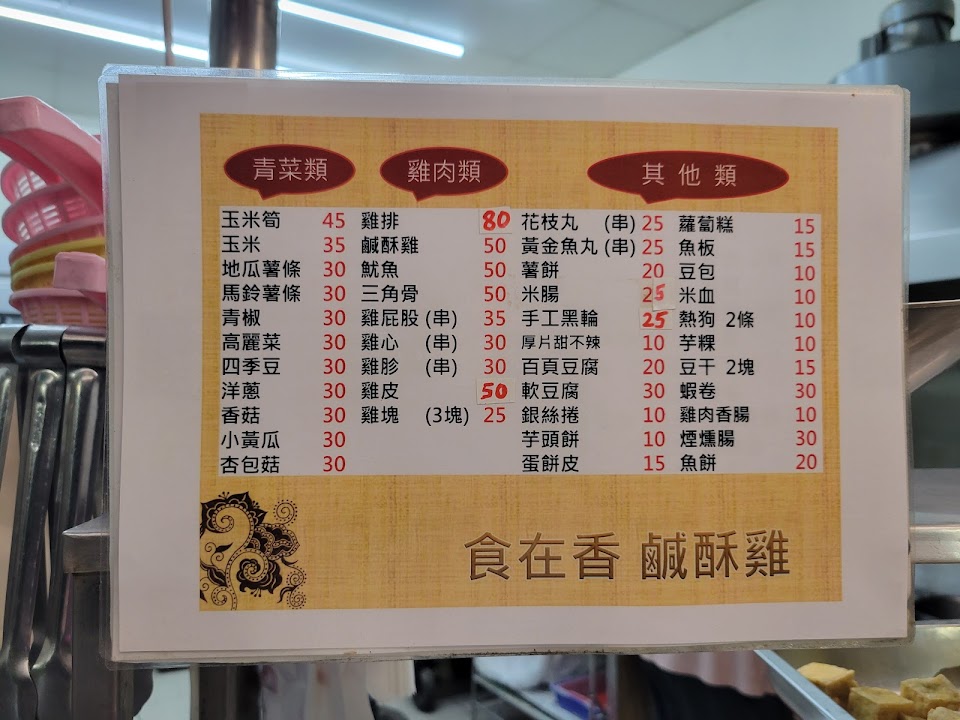 青菜類
玉米筍 45
玉米 35
地瓜薯條 30
馬鈴薯條 30
青椒 30
高麗菜 30
四季豆 30
洋蔥 30
香菇 30
小黃瓜 30
杏包菇 30
雞肉類
雞排 80
鹹酥雞 50
魷魚 50
三角骨 50
雞屁股 (串) 35
雞心 (串) 30
雞胗 (串) 30
雞皮 50
雞塊 (3塊) 25
其他類
花枝丸 (串) 25
黃金魚丸 (串) 25
薯餅 20
米腸 25
手工黑輪 25
厚片甜不辣 10
百頁豆腐 20
軟豆腐 30
銀絲捲 10
芋頭餅 10
蛋餅皮 15
蘿蔔糕 15
魚板 15
豆包 10
米血 10
熱狗 2條 10
芋粿 10
豆干 2塊 15
蝦卷 30
雞肉香腸 10
煙燻腸 30
魚餅 20
食在香 鹹酥雞